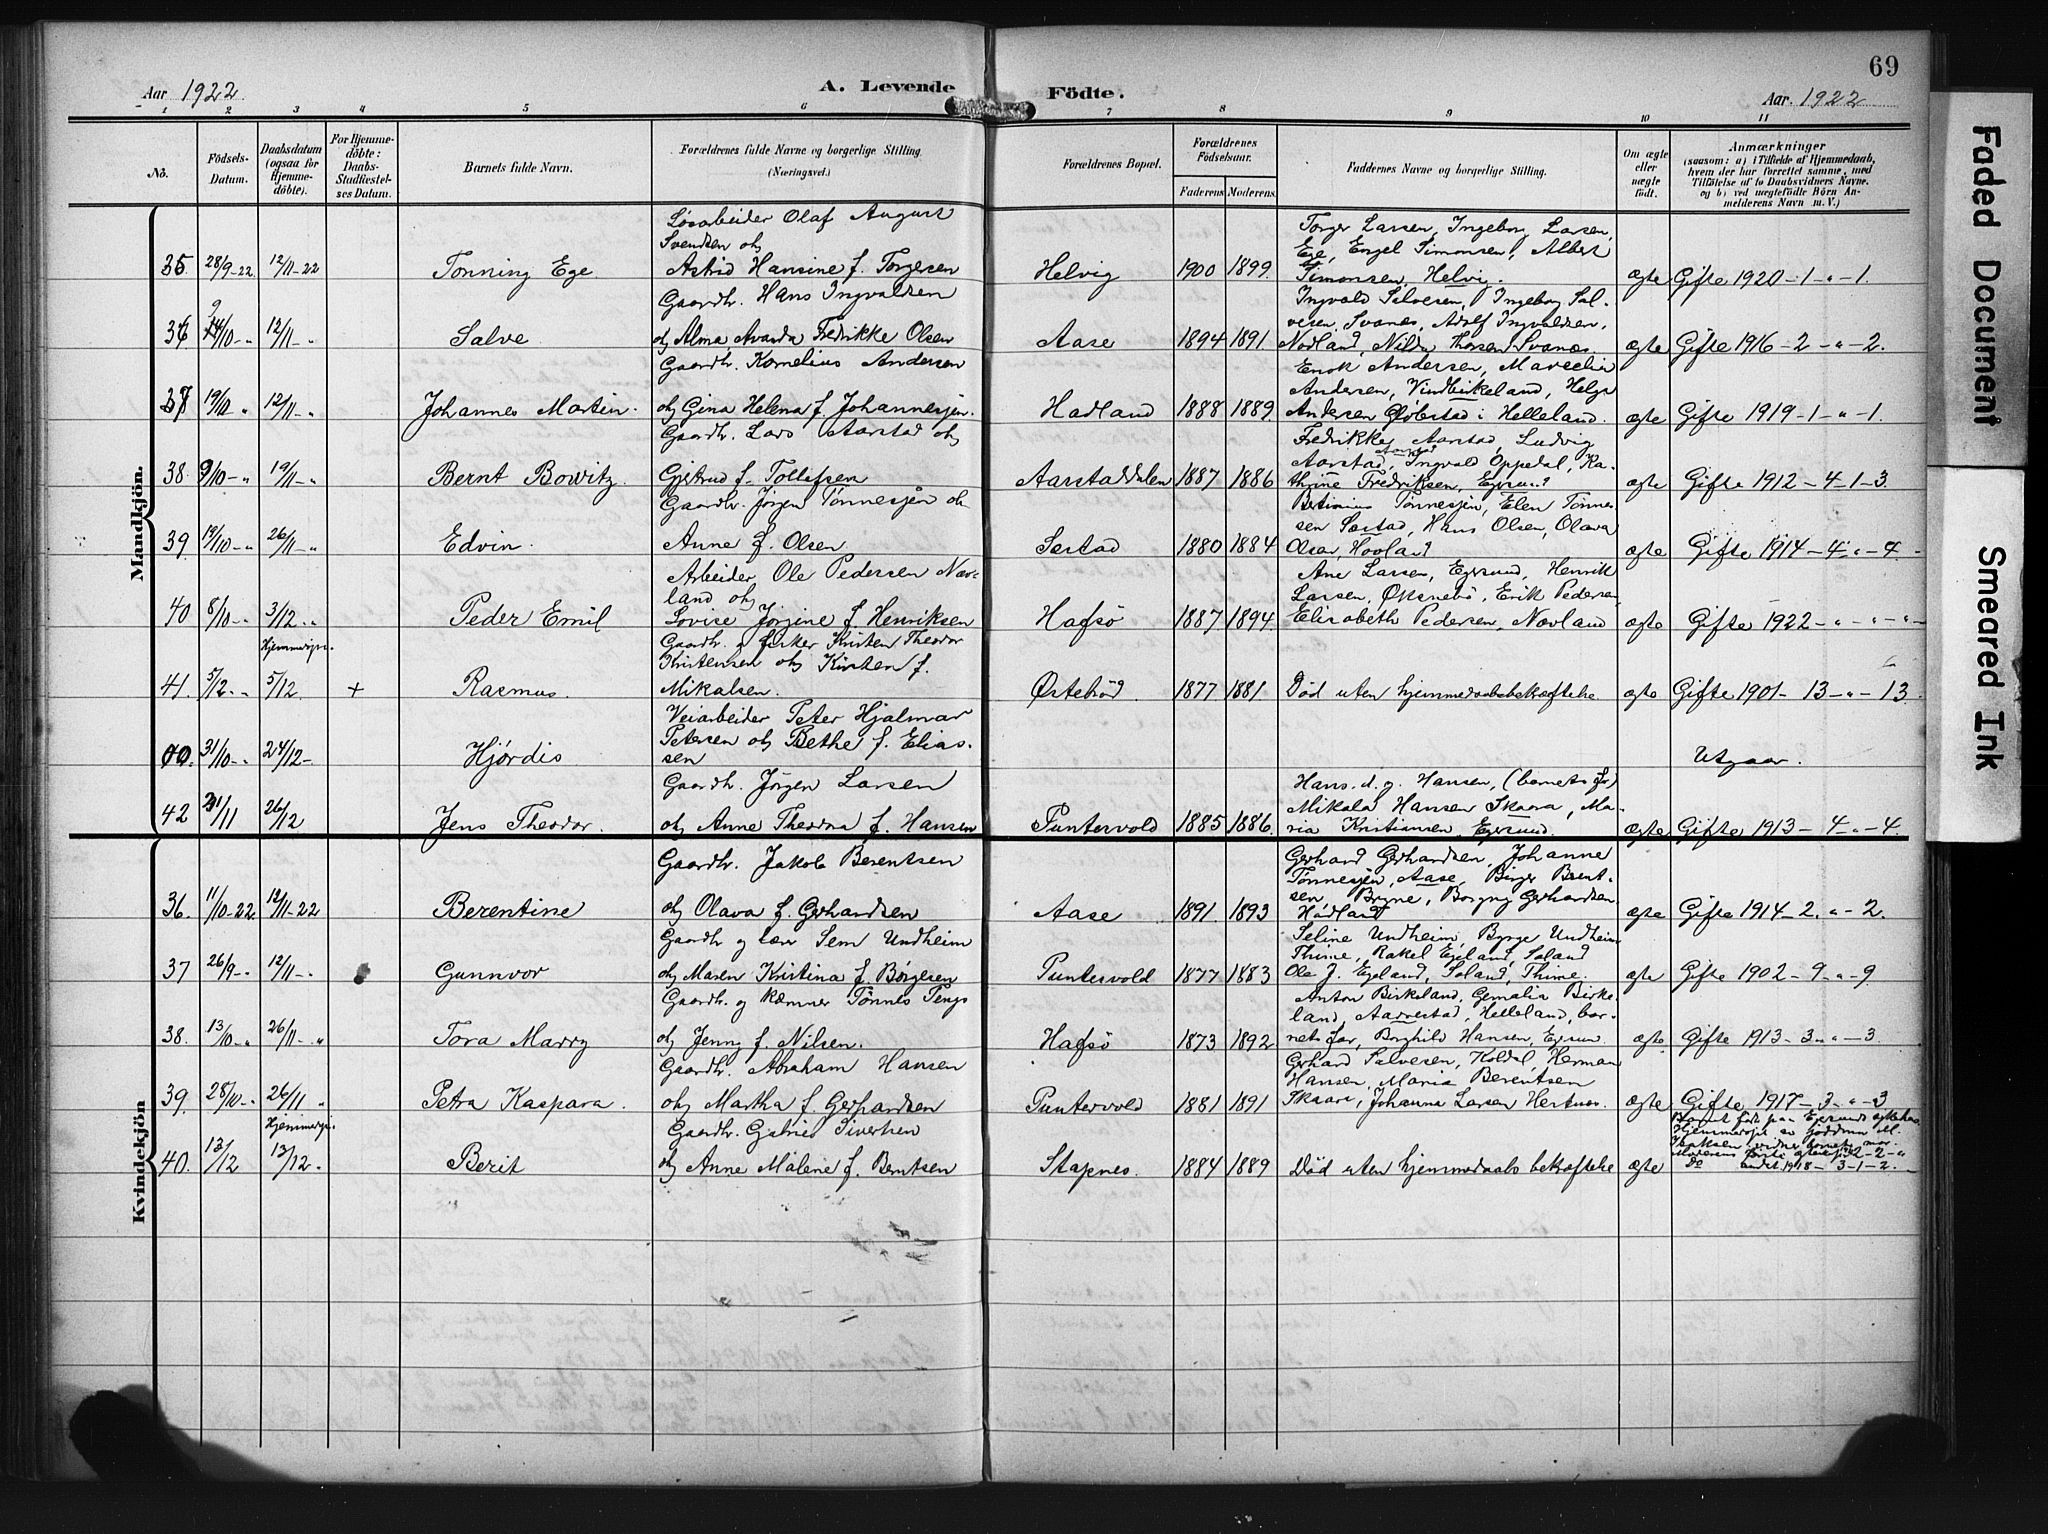 69
Aar 1922
A. Levende
Födte.
Aar. 1922
1 2 3 4 5 6 7 8 9 10 11
No.
Födsels-Datum.
Daabsdatum (ogsaa for Hjemme-döbte).
For Hjemme-döbte: Daabs-Stadfæstel-ses Datum.
Barnets fulde Navn.
Forældrenes fulde Navne og borgerlige Stilling.
(Næringsvei.)
Forældrenes Bopæl.
Forældrenes Födselsaar.
Faderens. Moderens.
Faddernes Navne og borgerlige Stilling.
Om ægte eller uægte födt.
Anmærkninger
(saasom: a) i Tilfælde af Hjemmedaab,
hvem der har forrettet samme, med
Tilføielse af to Daabsvidners Navne,
og b) ved uægtefödte Börn An-
melderens Navn m. V.)
Mandkjön.
Løsarbeider Olaf August
Svendsen og
35 28/9-22 12/11-22 Tonning Ege Astrid Hansine f. Torgersen Helvig 1900 1899
Torger Larsen, Ingeborg Larsen,
Ege, Engel Simonsen, Albert
Simonsen, Helvig. ægte Gifte 1920-1-"-1.
Gaardbr. Hans Ingvaldsen
36 /10-" 12/11-" Salve og Alma Fredrikke Olsen Aase 1894 1891
Ingvald Salvesen, Ingeborg Sal-
vesen, Svanes, Adolf Ingvaldsen,
Nodland, Svanes. ægte Gifte 1916-2-"-2.
Gaardbr. Kornelius Andersen
37 19/10 " 12/11-" Johannes Martin. og Gina Helena f. Johannesen. Hadland 1888 1889
Enok Andersen,
Andersen, Vindbirkeland, Helge
Andersen i Helleland. ægte Gifte 1919-1-"-1.
Gaardbr. Lars Aarstad og
38 9/10-" 19/11-" Bernt Bowitz Gjertrud f. Tollefsen Aarstaddalen 1887 1886
Fredrikke Aarstad, Ludvig
Aarstad, Ingvald Oppedal, Ka-
thrine Fredriksen, Egersund ægte Gifte 1912-4-1-3.
Gaardbr. Jørgen Tønnesen og
39 19/10-" 26/11-" Edvin. Anne f. Olsen Sæstad 1880 1884
Tønnesen, Elen Tønnes-
sen Sæstad, Hans Olsen, Olava
Olsen, Hovland ægte Gifte 1914-4-"-4-
Arbeider Ole Pedersen Næv-
land og
40 8/10-" 3/12-" Peder Emil Lovise Jørgine f. Henriksen Hafsö 1887 1894
Ane Larsen, Egersund, Henrik
Larsen, Øksnebö, Erik Pedersen,
Elisabeth Pedersen, Nævland ægte Gifte 1922-"-"-"-
Hjemmedøpt.
Gaardbr. og fisker Kristen Theodor
Kristensen og Kirsten f.
41. 5/12-" 5/12 + Rasmus. Mikalsen. Østebröd 1877 1881 Död uten hjemmedaabsbekræftelse ægte Gifte 1901-13-"-13.
Veiarbeider Peter Hjalmar
Petersen og Bethe f. Elias-
sen
31/10-" 24/12- Hjørdis Utgaar.
Gaardbr. Jørgen Larsen
42 /11 26/12 Jens Theodor. og Anne Theodora f. Hansen Puntervold 1885 1886.
Hans d. y. Hansen, (barnets far)
Mikala Hansen Skaara, Ma-
ria Kristiansen, Egersund. ægte Gifte 1913-4-"-4.
Kvindekjön
Gaardbr. Jakob Berentsen
36. 11/10-22 12/11-22 Berentine og Olava f. Gerhardsen Aase 1891 1893
Gerhard Gerhardsen, Johanne
Tønnesen, Aase, Birger Berent-
sen, Bryne, Borgny Gerhardsen
Hadland ægte Gifte 1914-2.-"-2.
Gaardbr og lærer Sem Undheim
37 26/9-" 12/11-" Gunnvor og Maren Kristina f. Børgesen Puntervold 1877 1883
Seline Undheim, Børge Undheim
Thime, Rakel Egeland, Soland
Ole J. Egeland, Soland, Thime. ægte Gifte 1902-9-"-9.
Gaardbr. og kæmner Tönnes Tengs
38. 13/10-" 26/11-" Tora Marry og Jenny f. Nilsen. Hafsö 1873 1892
Anton Birkeland, Birke-
land, Aarrestad, Helleland, bar-
nets far, Borghild Hansen, ægte Gifte 1913-3-"-3.
Gaardbr. Abraham Hansen
39. 28/10-" 26/11 " Petra Kaspara. og Martha f. Gerhardsen Puntervold 1881 1891
Gerhard Salvesen, Koldal, Herman
Hansen, Maria Berentsen
Skaara, Johanna Larsen Hestnes. ægte Gifte 1917-3-"-3
Hjemmedøpt.
Gaardbr. Gabriel Sivertsen
40. 13/12 13/12. Berit og Anne Malene f. Berntsen Stapnes. 1884 1889 Död uten hjemmedaabs bekræftelse ægte
andet 1918-3-1-2.
Faded Document
Smeared Ink